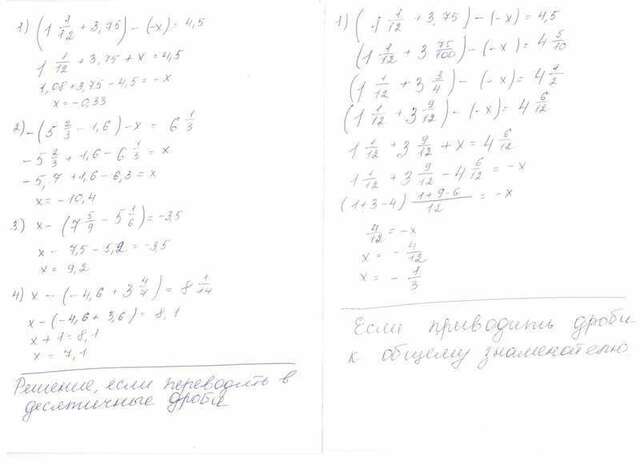 1) (1 1/12 + 3,75) - (-x) = 4,5
1 1/12 + 3,75 + x = 4,5
1,08 + 3,75 - 4,5 = -x
x = -0,33
2) -(5 2/3 - 1,6) - x = 6 1/3
-5 2/3 + 1,6 - 6 1/3 = x
-5,7 + 1,6 - 6,3 = x
x = -10,4
3) x - (7 5/9 - 5 1/6) = -3,5
x - 7,5 - 5,2 = -3,5
x = 9,2
4) x - (-4,6 + 3 4/7) = 8 1/14
x - (-4,6 + 3,6) = 8,1
x + 1 = 8,1
x = 7,1
Решение, если переводить в
десятичные дроби
1) (1 1/12 + 3,75) - (-x) = 4,5
(1 1/12 + 3 75/100) - (-x) = 4 5/10
(1 1/12 + 3 3/4) - (-x) = 4 1/2
(1 1/12 + 3 9/12) - (-x) = 4 6/12
1 1/12 + 3 9/12 + x = 4 6/12
1 1/12 + 3 9/12 - 4 6/12 = -x
(1+3-4) (1+9-6)/12 = -x
4/12 = -x
x = - 4/12
x = - 1/3
Если приводить дроби
к общему знаменателю